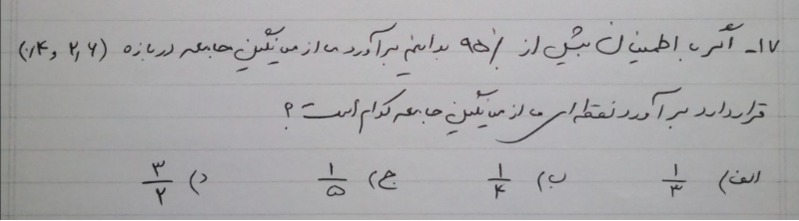 ۱۷- اگر با اطمینان بیش از ۹۵٪ بدانیم برآورد ما از میانگین جامعه در بازه (۰٫۴ و ۲٫۶)
قرار دارد برآورد نقطه‌ای ما از میانگین جامعه کدام است؟
الف) ۱/۳ ب) ۱/۴ ج) ۱/۵ د) ۳/۲